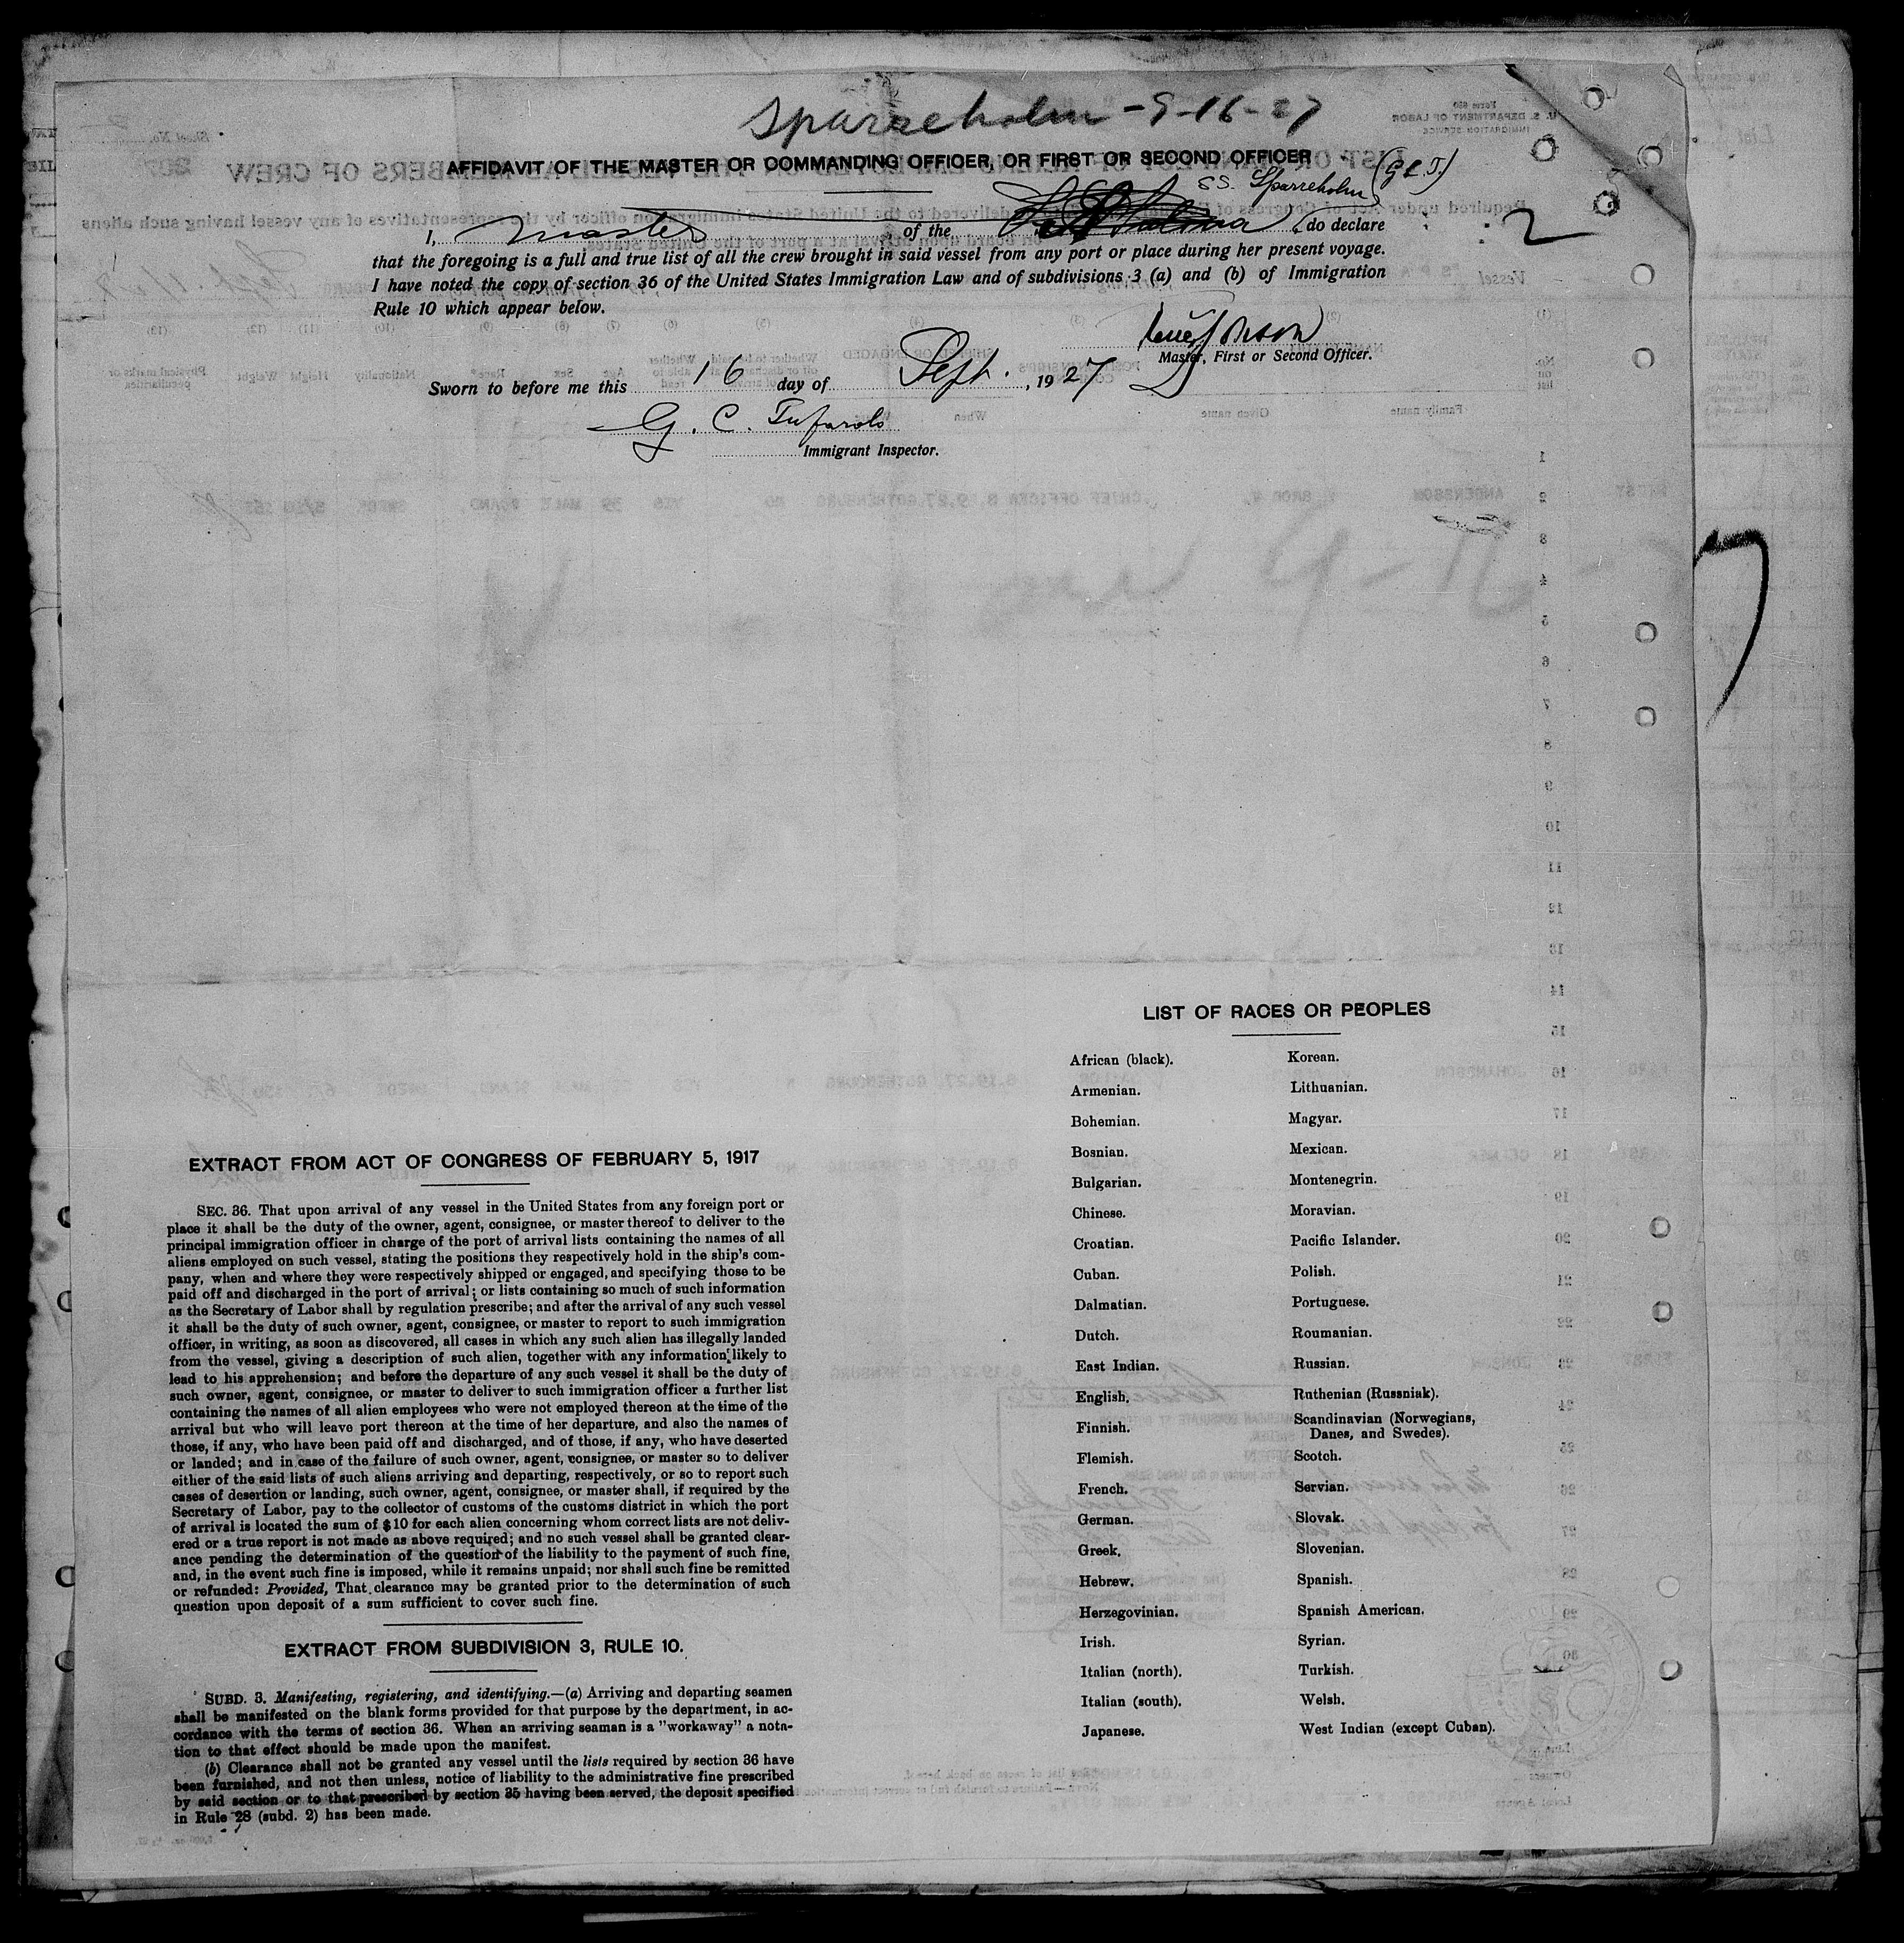 Sparreholm - 9-16-27
AFFIDAVIT OF THE MASTER OR COMMANDING OFFICER, OR FIRST OR SECOND OFFICER
(G C. T.)
SS. Sparreholm
2
I, master of the do declare
that the foregoing is a full and true list of all the crew brought in said vessel from any port or place during her present voyage.
I have noted the copy of section 36 of the United States Immigration Law and of subdivisions 3 (a) and (b) of Immigration
Rule 10 which appear below.
Master, First or Second Officer.
Sworn to before me this 16 day of Sept. , 1927
G. C. Tufarolo
Immigrant Inspector.
LIST OF RACES OR PEOPLES
African (black).
Armenian.
Bohemian.
Bosnian.
Bulgarian.
Chinese.
Croatian.
Cuban.
Dalmatian.
Dutch.
East Indian.
English.
Finnish.
Flemish.
French.
German.
Greek.
Hebrew.
Herzegovinian.
Irish.
Italian (north).
Italian (south).
Japanese.
Korean.
Lithuanian.
Magyar.
Mexican.
Montenegrin.
Moravian.
Pacific Islander.
Polish.
Portuguese.
Roumanian.
Russian.
Ruthenian (Russniak).
Scandinavian (Norwegians,
Danes, and Swedes).
Scotch.
Servian.
Slovak.
Slovenian.
Spanish.
Spanish American.
Syrian.
Turkish.
Welsh.
West Indian (except Cuban).
EXTRACT FROM ACT OF CONGRESS OF FEBRUARY 5, 1917
SEC. 36. That upon arrival of any vessel in the United States from any foreign port or
place it shall be the duty of the owner, agent, consignee, or master thereof to deliver to the
principal immigration officer in charge of the port of arrival lists containing the names of all
aliens employed on such vessel, stating the positions they respectively hold in the ship's com-
pany, when and where they were respectively shipped or engaged, and specifying those to be
paid off and discharged in the port of arrival; or lists containing so much of such information
as the Secretary of Labor shall by regulation prescribe; and after the arrival of any such vessel
it shall be the duty of such owner, agent, consignee, or master to report to such immigration
officer, in writing, as soon as discovered, all cases in which any such alien has illegally landed
from the vessel, giving a description of such alien, together with any information likely to
lead to his apprehension; and before the departure of any such vessel it shall be the duty of
such owner, agent, consignee, or master to deliver to such immigration officer a further list
containing the names of all alien employees who were not employed thereon at the time of the
arrival but who will leave port thereon at the time of her departure, and also the names of
those, if any, who have been paid off and discharged, and of those, if any, who have deserted
or landed; and in case of the failure of such owner, agent, consignee, or master so to deliver
either of the said lists of such aliens arriving and departing, respectively, or so to report such
cases of desertion or landing, such owner, agent, consignee, or master shall, if required by the
Secretary of Labor, pay to the collector of customs of the customs district in which the port
of arrival is located the sum of $10 for each alien concerning whom correct lists are not deliv-
ered or a true report is not made as above required; and no such vessel shall be granted clear-
ance pending the determination of the question of the liability to the payment of such fine,
and, in the event such fine is imposed, while it remains unpaid; nor shall such fine be remitted
or refunded: Provided, That clearance may be granted prior to the determination of such
question upon deposit of a sum sufficient to cover such fine.
EXTRACT FROM SUBDIVISION 3, RULE 10.
SUBD. 3. Manifesting, registering, and identifying.—(a) Arriving and departing seamen
shall be manifested on the blank forms provided for that purpose by the department, in ac-
cordance with the terms of section 36. When an arriving seaman is a "workaway" a nota-
tion to that effect should be made upon the manifest.
(b) Clearance shall not be granted any vessel until the lists required by section 36 have
been furnished, and not then unless, notice of liability to the administrative fine prescribed
by said section or to that prescribed by section 35 having been served, the deposit specified
in Rule 28 (subd. 2) has been made.